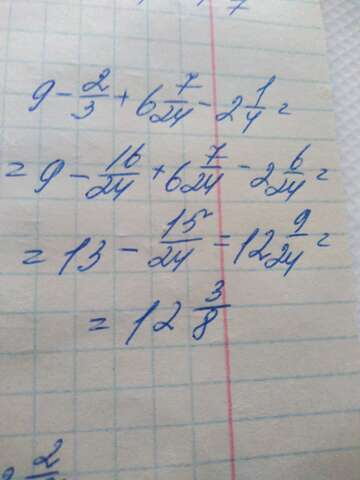 9 - 2/3 + 6 7/24 - 2 1/4 =
= 9 - 16/24 + 6 7/24 - 2 6/24 =
= 13 - 15/24 = 12 9/24 =
= 12 3/8